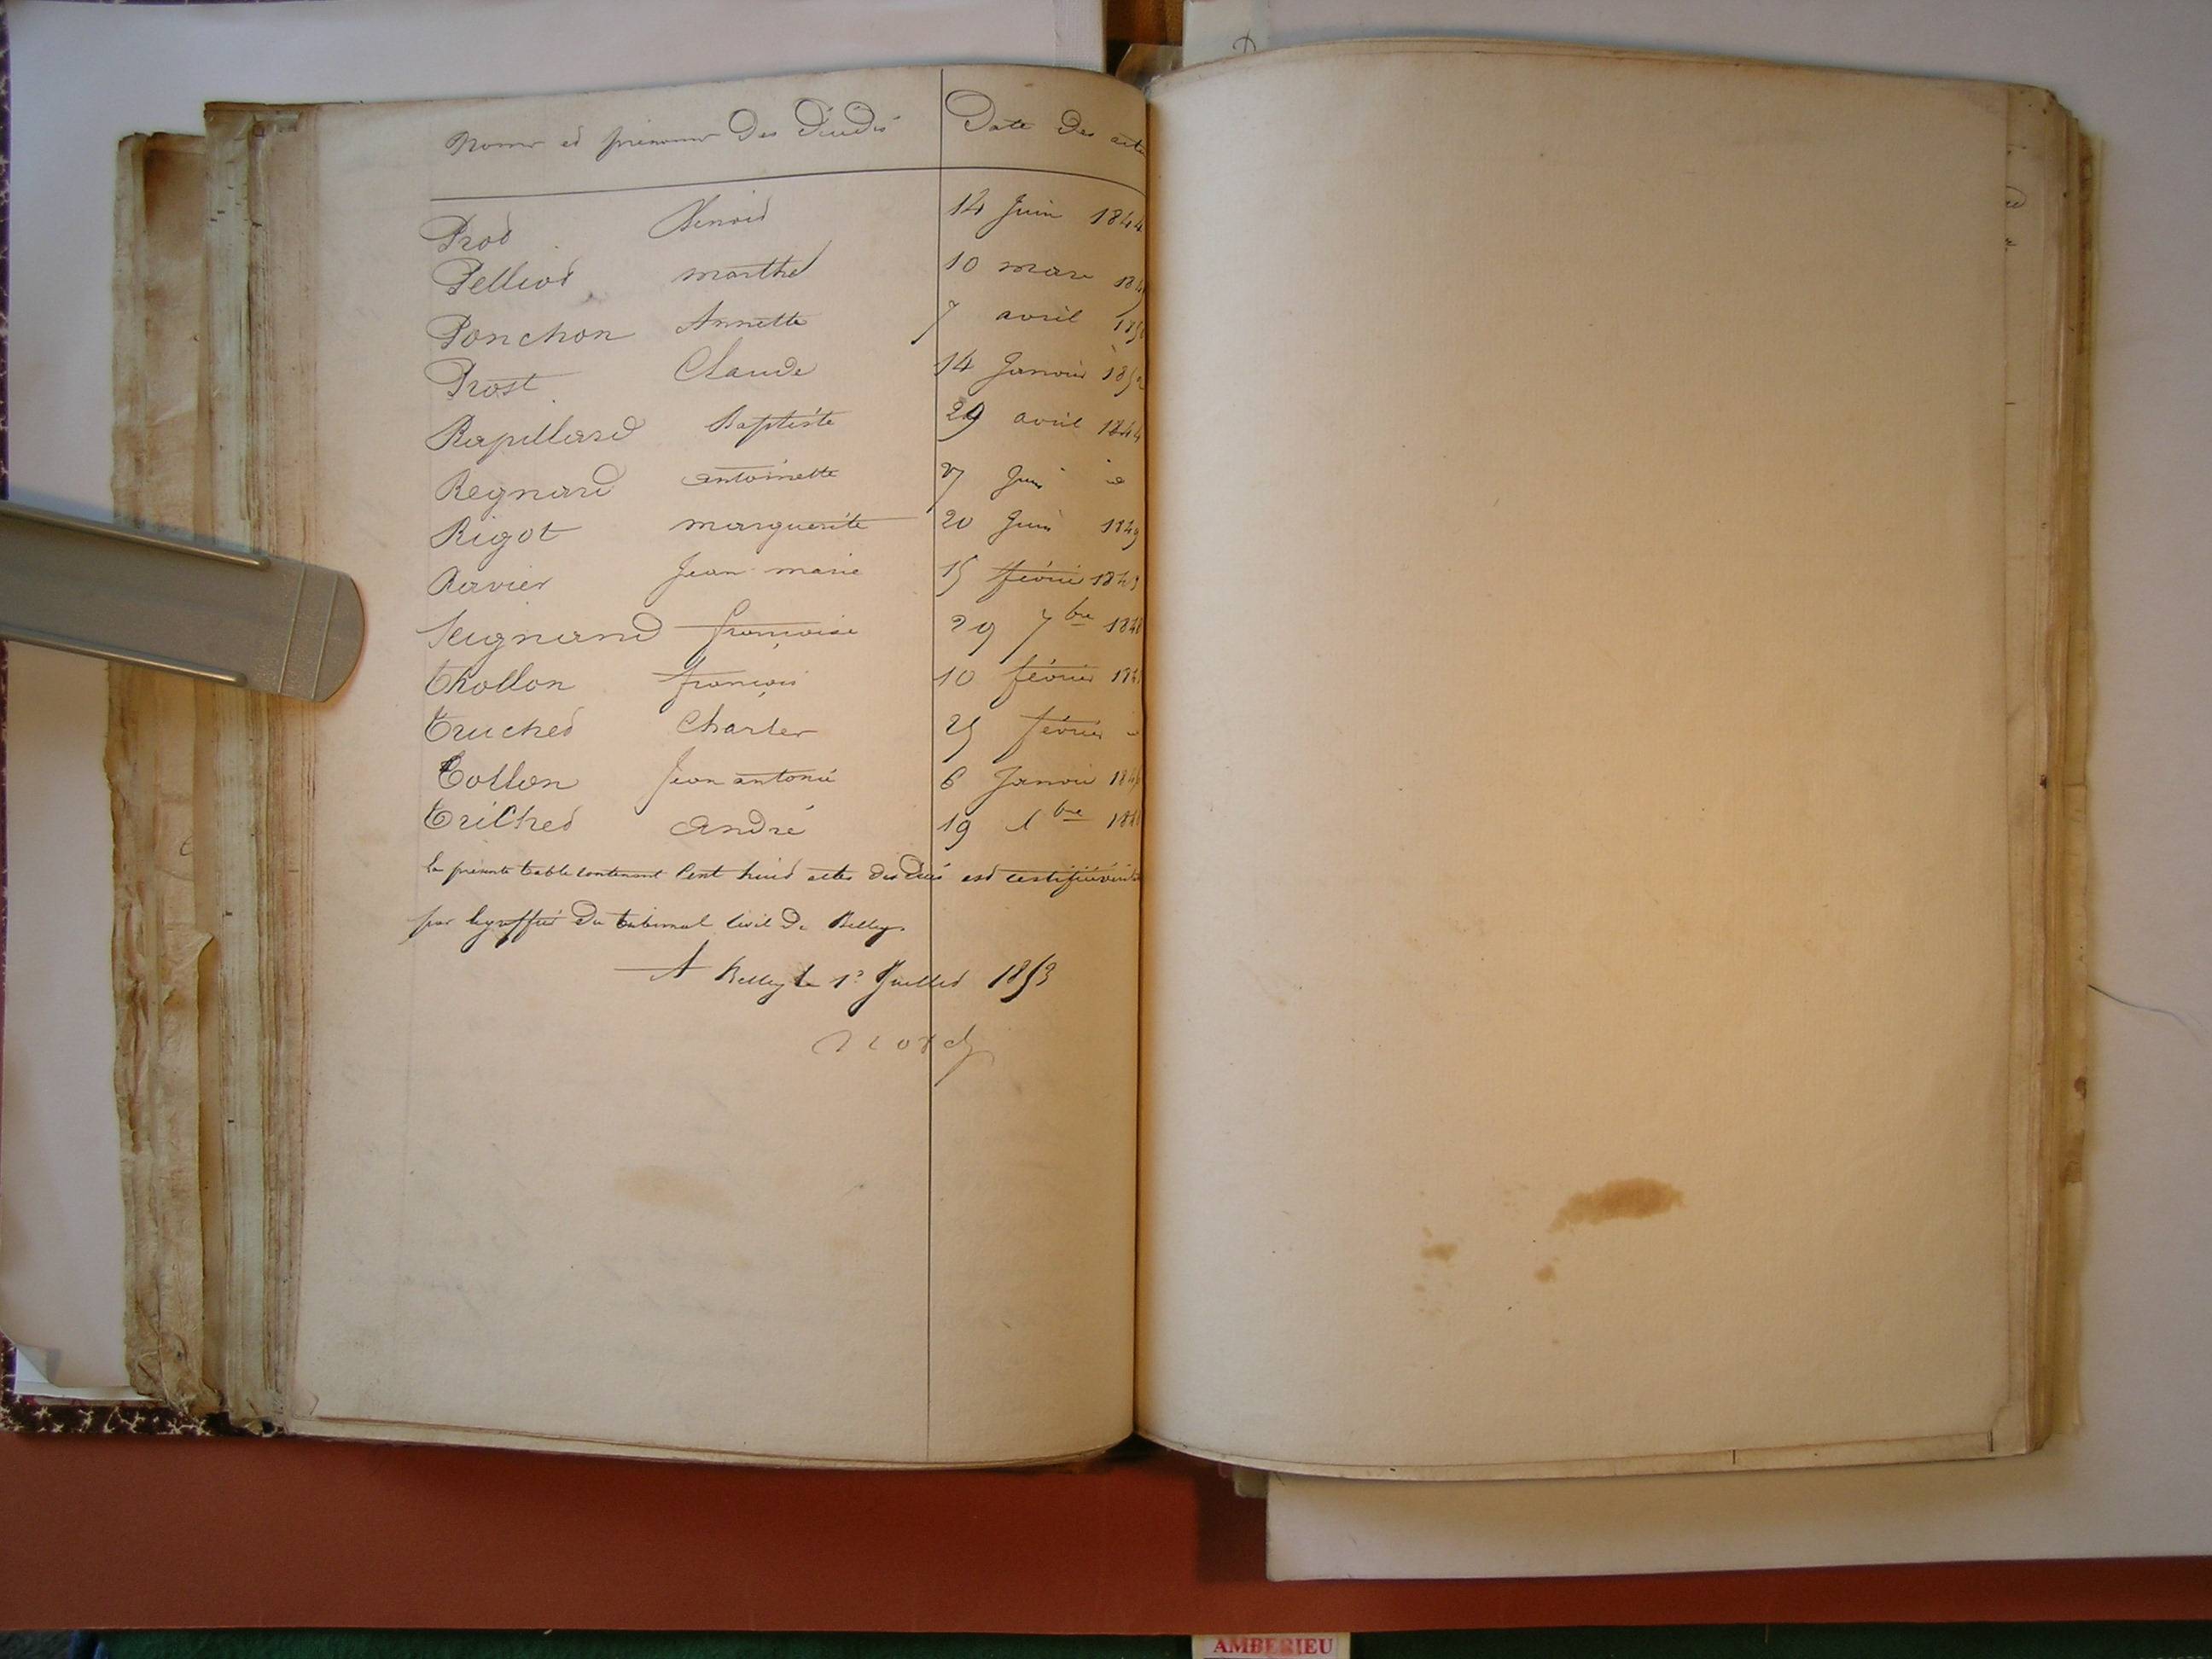 Noms et prénoms des décédés Date des actes
Prot Benoit 14 Juin 1844
Pelliot marthe 10 mars
Ponchon Annette 7 avril
Prost Claude 14 Janvier 1852
Rapillard Baptiste 29 avril 1844
Regnard antoinette 27 Juin id
Rigot marguerite 20 Juin 1849
Ravier Jean marie 15 février 1849
Seignand françoise 29 7bre 1848
Thollon françois 10 février
Truchet Charles 25 février id
Tollon Jean antoine 6 Janvier
Trichet andré 19 bre
la présente table contenant Cent huit actes des décès est certifiée véritable
par le greffier du tribunal civil de Belley.
A Belley le 1er Juillet 1853